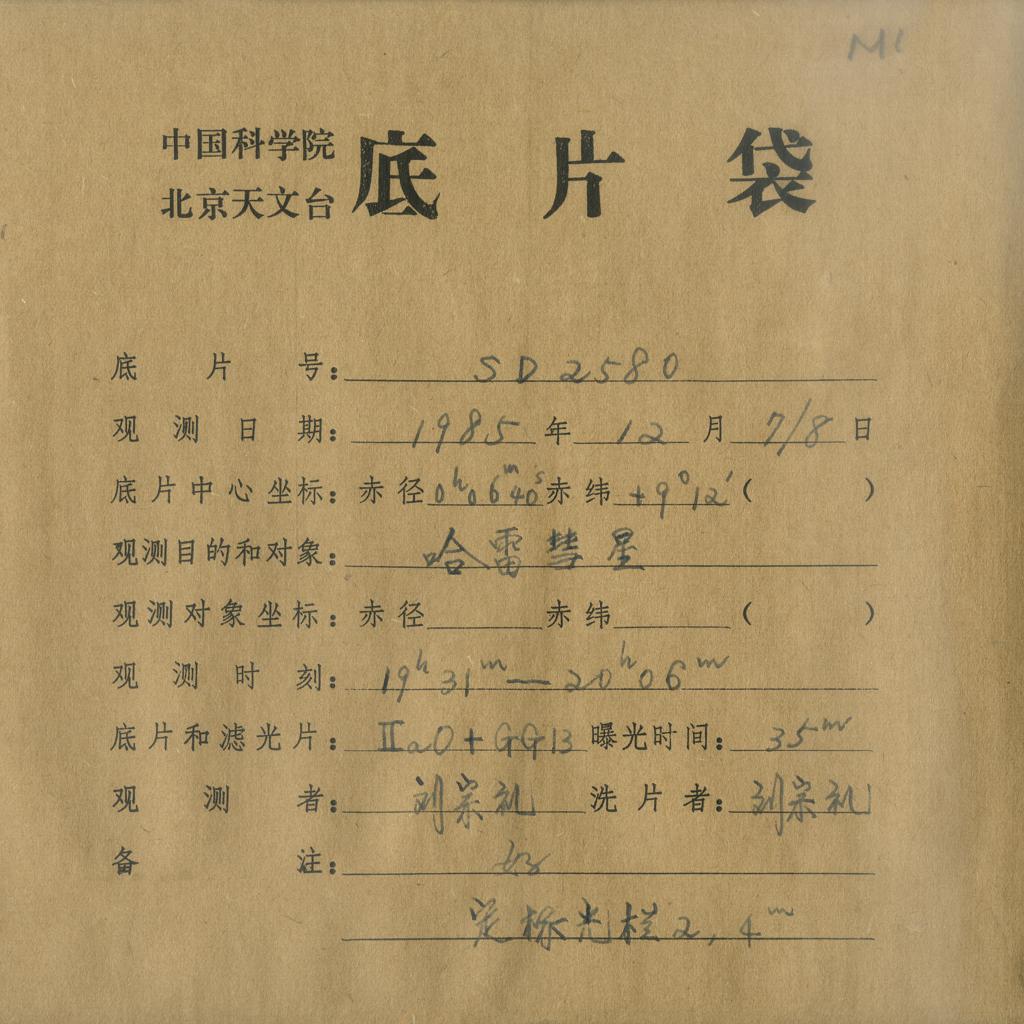 M1
中国科学院
北京天文台 底片袋
底片号: SD 2580
观测日期: 1985 年 12 月 7/8 日
底片中心坐标: 赤径 0h06m40s 赤纬 +9°12′ ( )
观测目的和对象: 哈雷彗星
观测对象坐标: 赤径 赤纬 ( )
观测时刻: 19h31m — 20h06m
底片和滤光片: ⅡaO + GG13 曝光时间: 35m
观测者: 刘宗礼 洗片者: 刘宗礼
备注: 好
定标光栏2, 4m